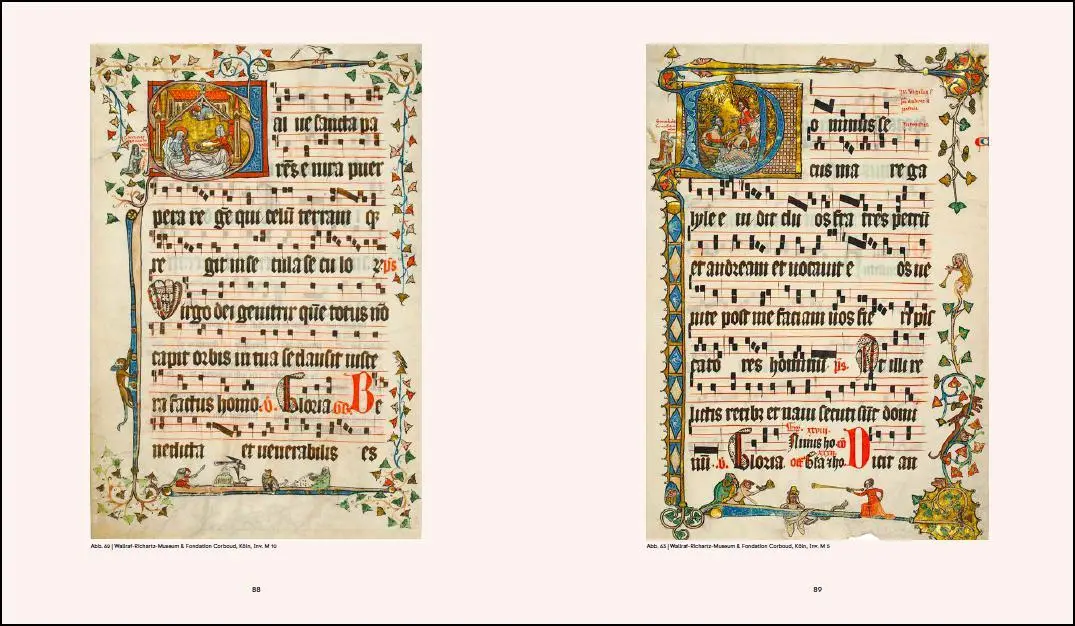 al ue sancta pa
rēs e nixa puer
pera re ge qui celū terram q;
re git in se cula se cu lo ꝝ p̄s
Virgo dei genitrix quē totus nō
capit orbis in tua se clausit visce
ra factus homo. v̄. Gloria Be
nedicta et uenerabilis es
Abb. 62 | Wallraf-Richartz-Museum & Fondation Corboud, Köln, Inv. M 10
88
Do minus se
cus ma re ga
lyle e ui dit du os fra tres petrū
et andream et uocauit e os ue
nite post me faciam uos fie ri pis
cato res hominū p̄s. At illi re
lictis retib; et naui secuti sūt domi
xxviii
Nimis ho
nū. v̄. Gloria Dicit an
Abb. 63 | Wallraf-Richartz-Museum & Fondation Corboud, Köln, Inv. M 5
89